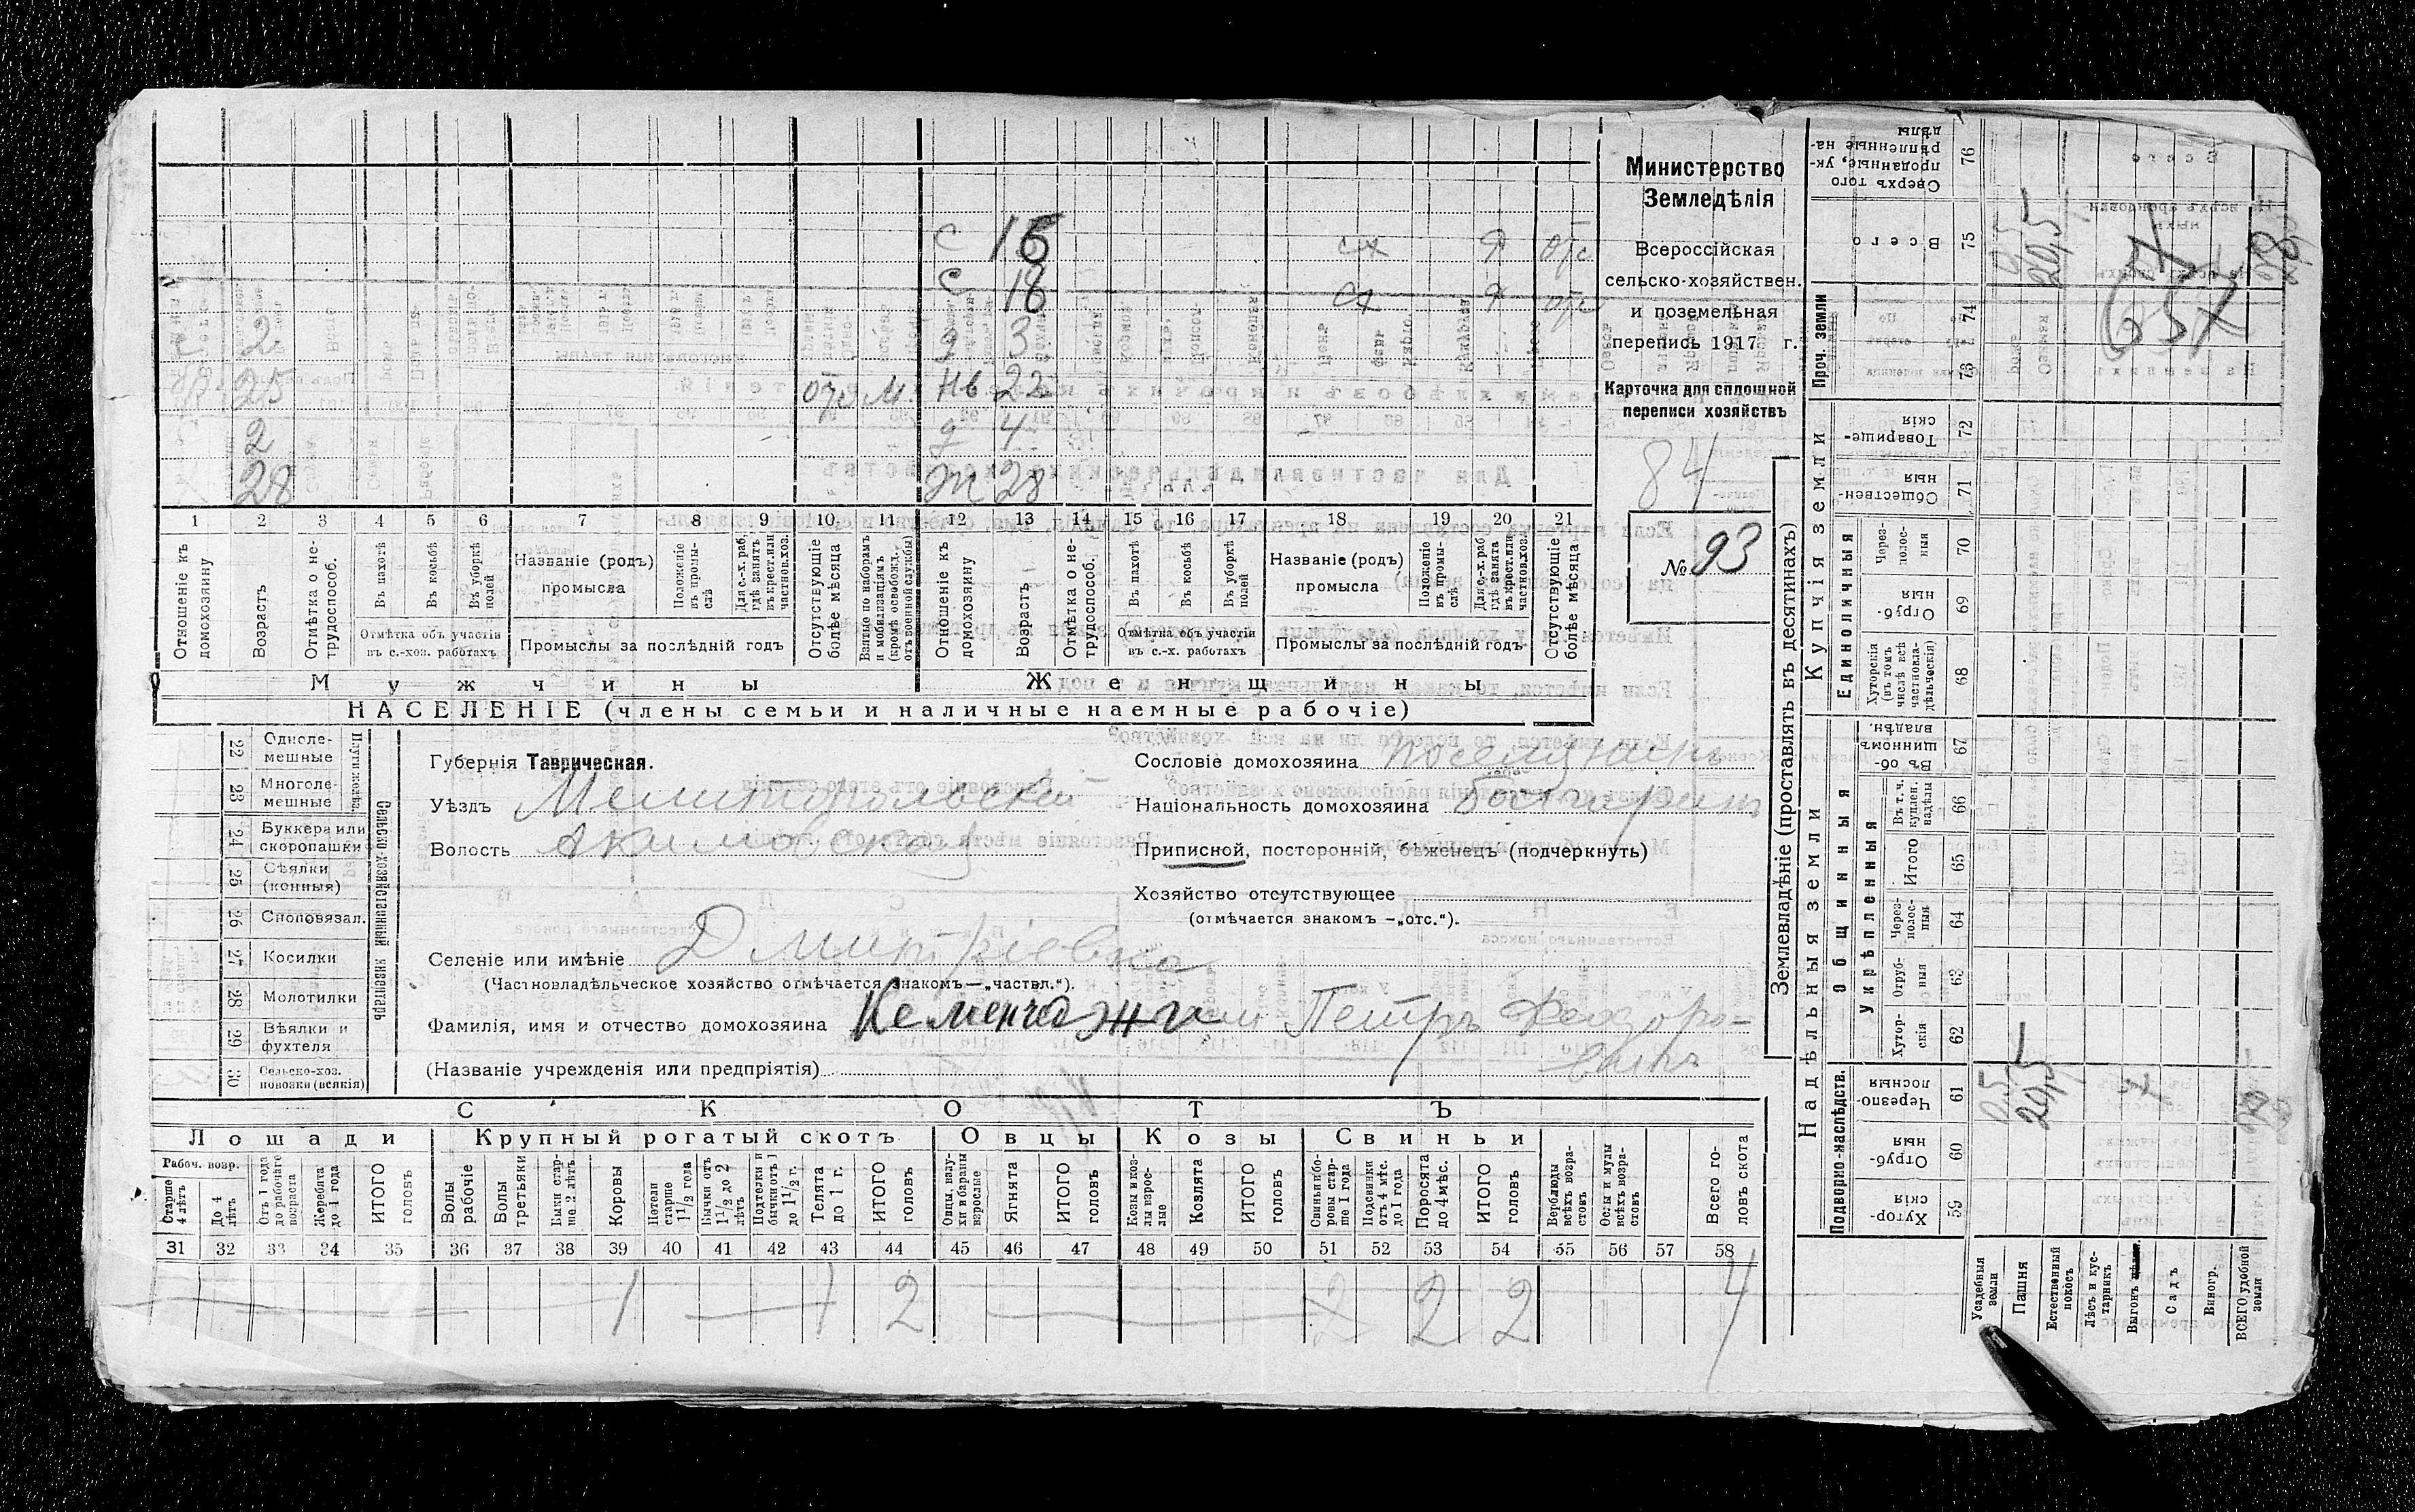 Министерство
Земледѣлія
Всероссійская
сельско-хозяйствен.
и поземельная
перепись 1917 г.
Карточка для сплошной
переписи хозяйствъ
84
№ 93
с 16 сх Я отс
с 18 сх Я отс
2 д 3
25 отс М нв 22
2 д 4
28 ж 28
1 2 3 4 5 6 7 8 9 10 11 12 13 14 15 16 17 18 19 20 21
Отношеніе къ домохозяину
Возрастъ
Отмѣтка о нетрудоспособ.
Въ пахотѣ
Въ косьбѣ
Въ уборкѣ полей
Отмѣтка объ участіи въ с.-хоз. работахъ
Названіе (родъ) промысла
Положеніе въ промыслѣ
Для с.-х. раб. гдѣ занятъ въ крест. или частновл. хоз.
Промыслы за послѣдній годъ
Отсутствующіе болѣе мѣсяца
Взятые по наборамъ и мобилизаціямъ (кромѣ освобожд. отъ военной службы)
Отношеніе къ домохозяину
Возрастъ
Отмѣтка о нетрудоспособ.
Въ пахотѣ
Въ косьбѣ
Въ уборкѣ полей
Отмѣтка объ участіи въ с.-х. работахъ
Названіе (родъ) промысла
Положеніе въ промыслѣ
Для с.-х. раб. гдѣ занята въ крест. или частнов. хоз.
Промыслы за послѣдній годъ
Отсутствующіе болѣе мѣсяца
Мужчины Женщины
НАСЕЛЕНІЕ (члены семьи и наличные наемные рабочіе)
Сельско-хозяйственный инвентарь
22 Однолемешные
23 Многолемешные
24 Буккера или скоропашки
25 Сѣялки (конныя)
26 Сноповязал.
27 Косилки
28 Молотилки
29 Вѣялки и фухтеля
30 Сельско-хоз. повозки (всякія)
Губернія Таврическая.
Уѣздъ Мелитопольскій
Волость Акимовская
Селеніе или имѣніе Дмитріевка
(Частновладѣльческое хозяйство отмѣчается знакомъ—„частвл.“).
Фамилія, имя и отчество домохозяина Кеменчеджи Петръ Феодоро-
вичъ
(Названіе учрежденія или предпріятія)
Сословіе домохозяина поселянинъ
Національность домохозяина болгаринъ
Приписной, посторонній, бѣженецъ (подчеркнуть)
Хозяйство отсутствующее
(отмѣчается знакомъ —„отс.“).
СКОТЪ
Лошади Крупный рогатый скотъ Овцы Козы Свиньи
Рабоч. возр.
Старше 4 лѣтъ
До 4 лѣтъ
Отъ 1 года до рабочаго возраста
Жеребята до 1 года
ИТОГО головъ
Волы рабочіе
Волы третьяки
Быки старше 2 лѣтъ
Коровы
Нетели старше 1 1/2 года
Бычки отъ 1 1/2 до 2 лѣтъ
Подтелки и бычки отъ 1 до 1 1/2 г.
Телята до 1 г.
ИТОГО головъ
Овцы, валухи и бараны взрослые
Ягнята
ИТОГО головъ
Козы и козлы взрослые
Козлята
ИТОГО головъ
Свиньи и боровы старше 1 года
Подсвинки отъ 4 мѣс. до 1 года
Поросята до 4 мѣс.
ИТОГО головъ
Верблюды всѣхъ возрастовъ
Ослы и мулы всѣхъ возрастовъ
Всего головъ скота
31 32 33 34 35 36 37 38 39 40 41 42 43 44 45 46 47 48 49 50 51 52 53 54 55 56 57 58
1 1 2 2 2 4
Землевладѣніе (проставлять въ десятинахъ)
Надѣльныя земли
Купчія земли
Проч. земли
Подворно-наслѣдств.
Общинныя
Укрѣпленныя
Единоличныя
59 Хуторскія
60 Отрубныя
61 Черезполосныя
62 Хуторскія
63 Отрубныя
64 Черезполосныя
65 Итого
66 Въ т. ч. куплен. надѣлы
67 Въ общинномъ владѣн.
68 Хуторскія (въ томъ числѣ всѣ частновладѣльческія)
69 Отрубныя
70 Черезполосныя
71 Общественныя
72 Товарищескія
73
74
75 Всего
76 Сверхъ того проданные, укрѣпленные надѣлы
Усадебныя земли
Пашня
Естественный покосъ
Лѣсъ и кустарникъ
Выгонъ
Садъ
Виногр.
ВСЕГО удобной земли